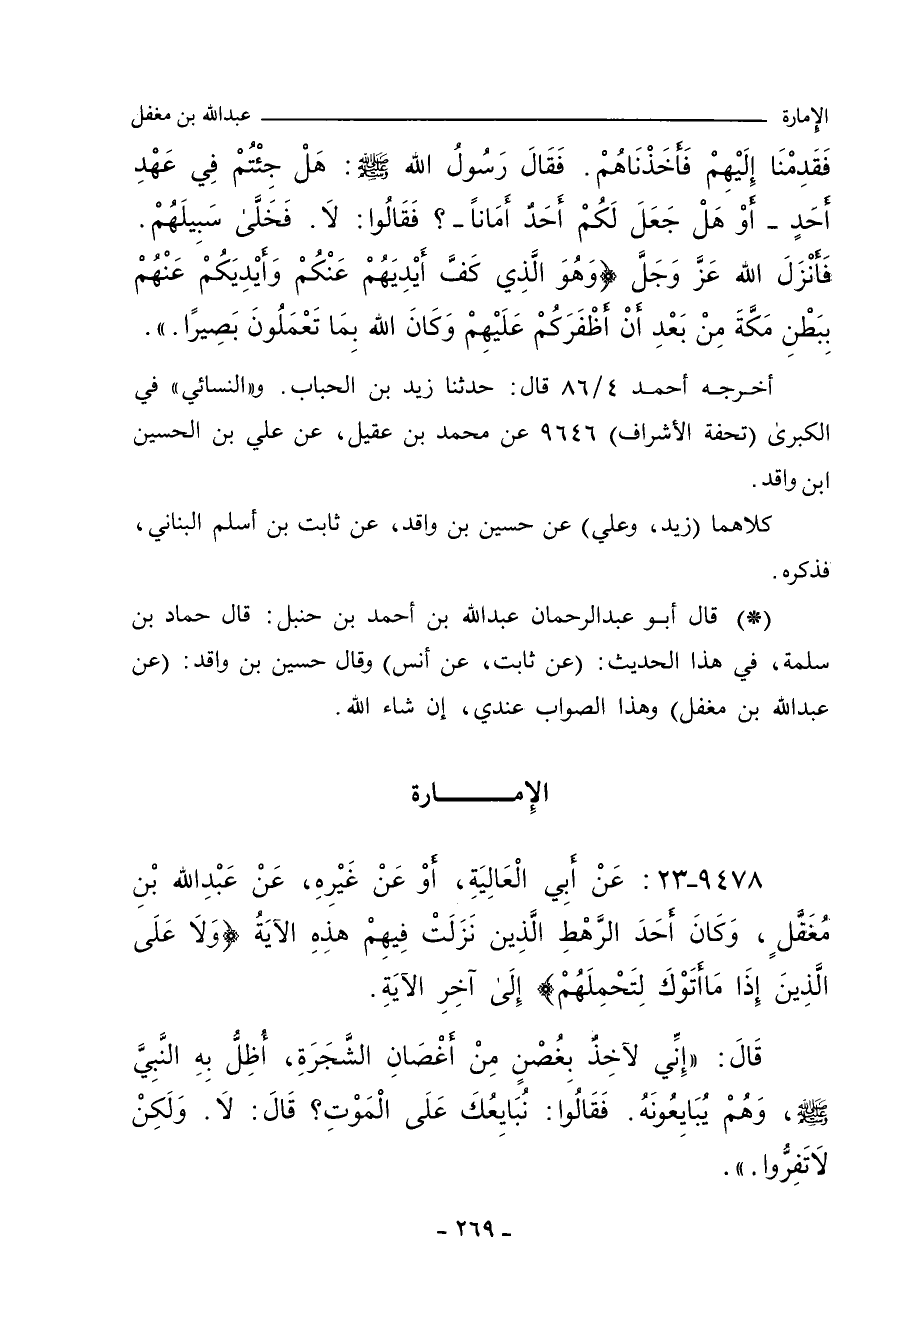 الإمارة ــــــــــــ عبدالله بن مغفل
فَقَدِمْنَا إِلَيْهِمْ فَأَخَذْنَاهُمْ. فَقَالَ رَسُولُ الله ﷺ: هَلْ جِئْتُمْ فِي عَهْدِ
أَحَدٍ - أَوْ هَلْ جَعَلَ لَكُمْ أَحَدٌ أَمَاناً - ؟ فَقَالُوا: لَا. فَخَلَّىٰ سَبِيلَهُمْ.
فَأَنْزَلَ الله عَزَّ وَجَلَّ ﴿وَهُوَ الَّذِي كَفَّ أَيْدِيَهُمْ عَنْكُمْ وَأَيْدِيَكُمْ عَنْهُمْ
بِبَطْنِ مَكَّةَ مِنْ بَعْدِ أَنْ أَظْفَرَكُمْ عَلَيْهِمْ وَكَانَ الله بِمَا تَعْمَلُونَ بَصِيرًا.».
أخرجه أحمد ٨٦/٤ قال: حدثنا زيد بن الحباب. و«النسائي» في
الكبرىٰ (تحفة الأشراف) ٩٦٤٦ عن محمد بن عقيل، عن علي بن الحسين
ابن واقد.
كلاهما (زيد، وعلي) عن حسين بن واقد، عن ثابت بن أسلم البناني،
فذكره.
(*) قال أبو عبدالرحمان عبدالله بن أحمد بن حنبل: قال حماد بن
سلمة، في هذا الحديث: (عن ثابت، عن أنس) وقال حسين بن واقد: (عن
عبدالله بن مغفل) وهذا الصواب عندي، إن شاء الله.
الإمـــــــارة
٩٤٧٨-٢٣: عَنْ أَبِي الْعَالِيَةِ، أَوْ عَنْ غَيْرِهِ، عَنْ عَبْدِالله بْنِ
مُغَفَّلٍ، وَكَانَ أَحَدَ الرَّهْطِ الَّذِين نَزَلَتْ فِيهِمْ هذِهِ الآيَةُ ﴿وَلَا عَلَى
الَّذِينَ إِذَا مَاأَتَوْكَ لِتَحْمِلَهُمْ﴾ إِلَىٰ آخِرِ الآيَةِ.
قَالَ: «إِنِّي لآخِذٌ بِغُصْنٍ مِنْ أَغْصَانِ الشَّجَرَةِ، أُظِلُّ بِهِ النَّبِيَّ
ﷺ، وَهُمْ يُبَايِعُونَهُ. فَقَالُوا: نُبَايِعُكَ عَلَى الْمَوْتِ؟ قَالَ: لَا. وَلَكِنْ
لَاتَفِرُّوا.».
- ٢٦٩ -